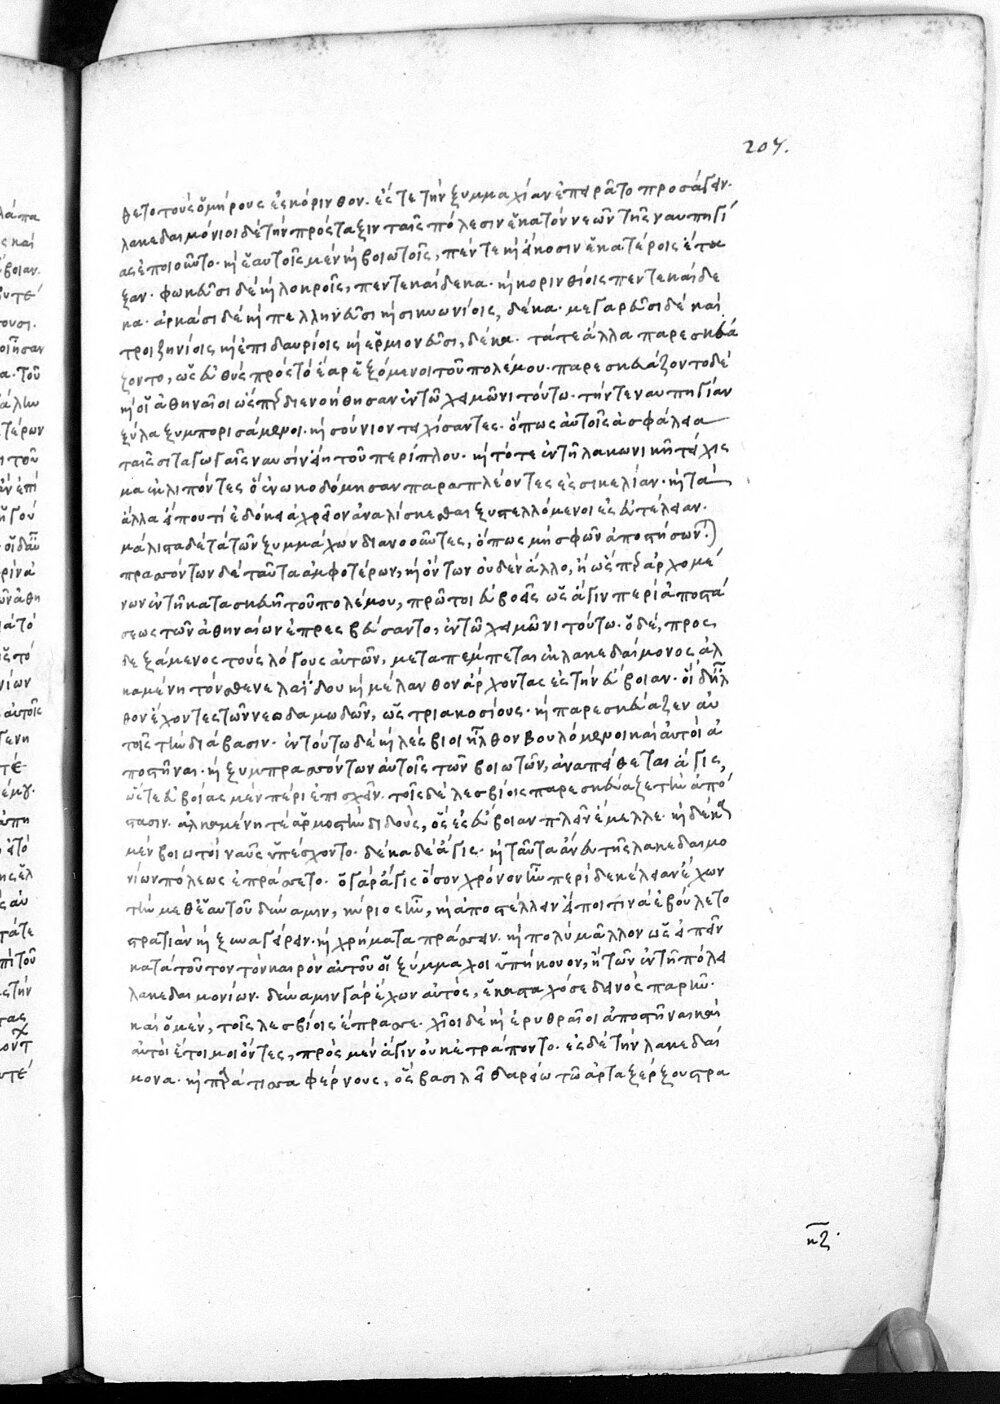 207.
θετο τοὺς ὁμήρους ἐς κόρινθον. ἔς τε τὴν ξυμμαχίαν ἐπειρᾶτο προσάγειν.
λακεδαιμόνιοι δὲ τὴν πρόσταξιν ταῖς πόλεσιν ἑκατὸν νεῶν τῆς ναυπηγί
ας ἐποιοῦντο. καὶ ἑαυτοῖς μὲν καὶ βοιωτοῖς, πέντε καὶ εἴκοσιν ἑκατέροις ἔτα
ξαν. φωκεῦσι δὲ καὶ λοκροῖς, πεντεκαίδεκα. καὶ κορινθίοις πεντεκαίδε
κα. ἀρκάσι δὲ καὶ πελληνεῦσι καὶ σικυωνίοις, δέκα. μεγαρεῦσι δὲ καὶ
τροιζηνίοις καὶ ἐπιδαυρίοις καὶ ἑρμιονεῦσι, δέκα. τά τε ἄλλα παρεσκευά
ζοντο, ὡς εὐθὺς πρὸς τὸ ἔαρ ἑξόμενοι τοῦ πολέμου. παρεσκευάζοντο δὲ
καὶ οἱ ἀθηναῖοι ὥσπερ διενοήθησαν ἐν τῷ χειμῶνι τούτω. τήν τε ναυπηγίαν
ξύλα ξυμπορισάμενοι. καὶ σούνιον τειχίσαντες. ὅπως αὐτοῖς ἀσφάλεια
ταῖς σιταγωγαῖς ναυσὶν εἴη τοῦ περίπλου. καὶ τό τε ἐν τῇ λακωνικῇ τείχισ
μα ἐκλιπόντες ὃ ἐνωκοδόμησαν παραπλέοντες ἐς σικελίαν. καὶ τὰ
ἄλλα εἴ που τὶ ἐδόκει ἀχρεῖον ἀναλίσκεσθαι ξυστελλόμενοι ἐς εὐτέλειαν.
μάλιστα δὲ τὰ τῶν ξυμμάχων διανοοῦντες, ὅπως μὴ σφῶν ἀποστήσωντ(αι).
πρασσόντων δὲ ταῦτα ἀμφοτέρων, καὶ ὄντων οὐδὲν ἄλλο, ἢ ὥσπερ ἀρχομέ
νων ἐν τῇ κατασκευῇ τοῦ πολέμου, πρῶτοι εὐβοεῖς ὡς ἄγιν περὶ ἀποστά
σεως τῶν ἀθηναίων ἐπρεσβεύσαντο, ἐν τῷ χειμῶνι τούτω. ὁ δέ, προς
δεξάμενος τοὺς λόγους αὐτῶν, μεταπέμπεται ἐκ λακεδαίμονος ἀλ
καμένη τὸν σθενελαΐδου καὶ μέλανθον ἄρχοντας ἐς τὴν εὔβοιαν. οἱ δ' ἦλ
θον ἔχοντες τῶν νεωδαμωδῶν, ὡς τριακοσίους. καὶ παρεσκεύαζεν αὐ
τοῖς τὴν διάβασιν. ἐν τούτω δὲ καὶ λέσβιοι ἦλθον βουλόμενοι καὶ αὐτοὶ ἀ
ποστῆναι. καὶ ξυμπρασσόντων αὐτοῖς τῶν βοιωτῶν, ἀναπείθεται ἄγις,
ὥστε εὐβοίας μὲν πέρι ἐπισχεῖν. τοῖς δὲ λεσβίοις παρεσκεύαζε τὴν ἀπό
στασιν. ἀλκαμένη τὲ ἁρμοστὴν διδοὺς, ὃς ἐς εὔβοιαν πλεῖν ἔμελλε. καὶ δέκα
μὲν βοιωτοὶ ναῦς ὑπέσχοντο. δέκα δὲ ἄγις. καὶ ταῦτα ἄνευ τῆς λακεδαιμο
νίων πόλεως ἐπράσσετο. ὁ γὰρ ἄγις ὅσον χρόνον ἦν περὶ δεκέλειαν ἔχων
τὴν μεθ' ἑαυτοῦ δύναμιν, κύριος ἦν, καὶ ἀποστέλλειν εἴ ποι τινὰ ἐβούλετο
στρατιὰν καὶ ξυναγείρειν. καὶ χρήματα πράσσειν. καὶ πολὺ μᾶλλον ὡς εἰπεῖν
κατὰ τοῦτον τὸν καιρὸν αὐτοῦ οἱ ξύμμαχοι ὑπήκουον, ἢ τῶν ἐν τῇ πόλει
λακεδαιμονίων. δύναμιν γὰρ ἔχων αὐτὸς, ἑκασταχόσε δεινὸς παρῆν.
καὶ ὁ μὲν, τοῖς λεσβίοις ἔπρασσε. χῖοι δὲ καὶ ἐρυθραῖοι ἀποστῆναι καὶ
αὐτοὶ ἕτοιμοι ὄντες, πρὸς μὲν ἄγιν οὐκ ἐτράποντο. ἐς δὲ τὴν λακεδαί
μονα. καὶ παρὰ τισσαφέρνους, ὃς βασιλεῖ δαρείω τῶ ἀρταξέρξου στρα
κζ.